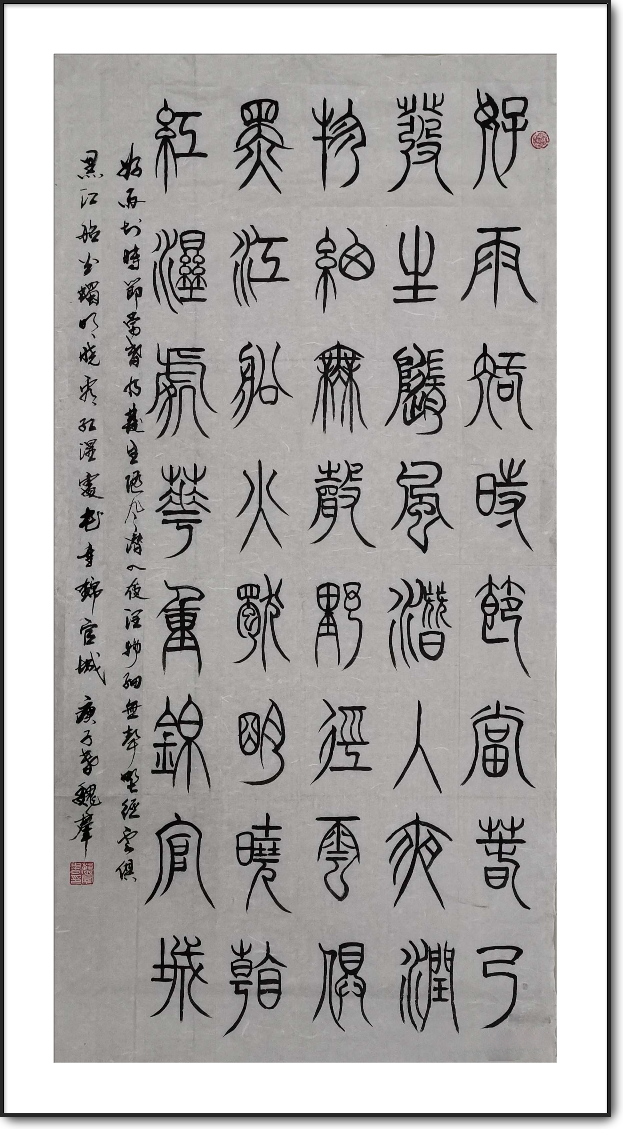 好雨知時節當春乃
發生隨風潛入夜潤
物細無聲野徑雲俱
黑江船火獨明曉看
紅濕處華重錦官城
好雨知時節當春乃發生隨風潛入夜潤物細無聲野徑雲俱
黑江船火獨明曉看紅濕處花重錦官城 庚子春魏羣